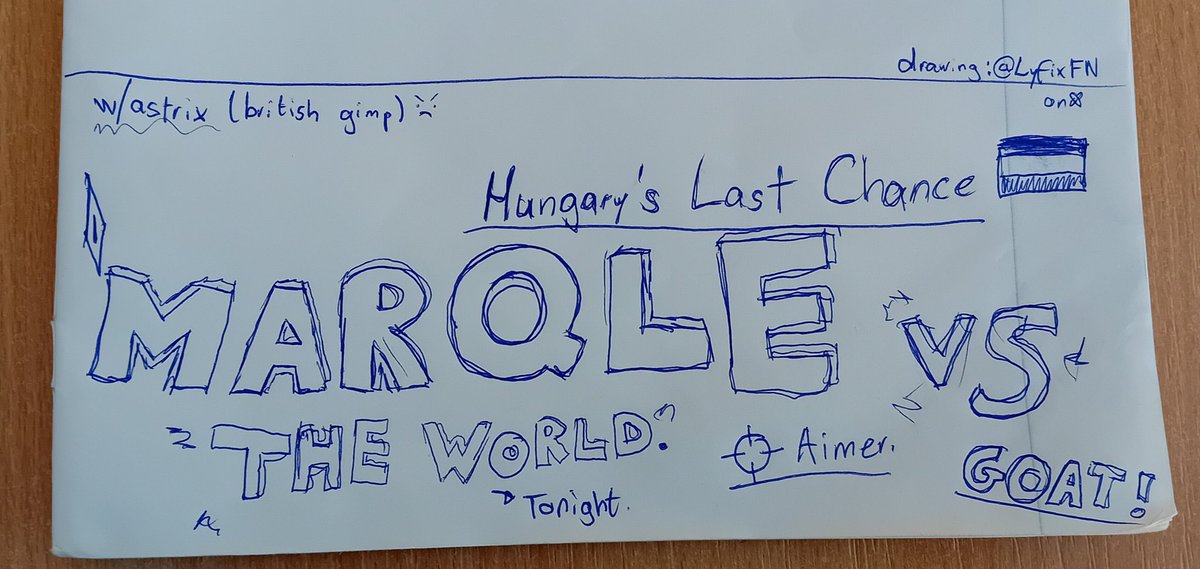 drawing:@LyfixFN
on
w/astrix (british gimp)
Hungary's Last Chance
MARQLE VS
THE WORLD.
Aimer.
GOAT!
Tonight.